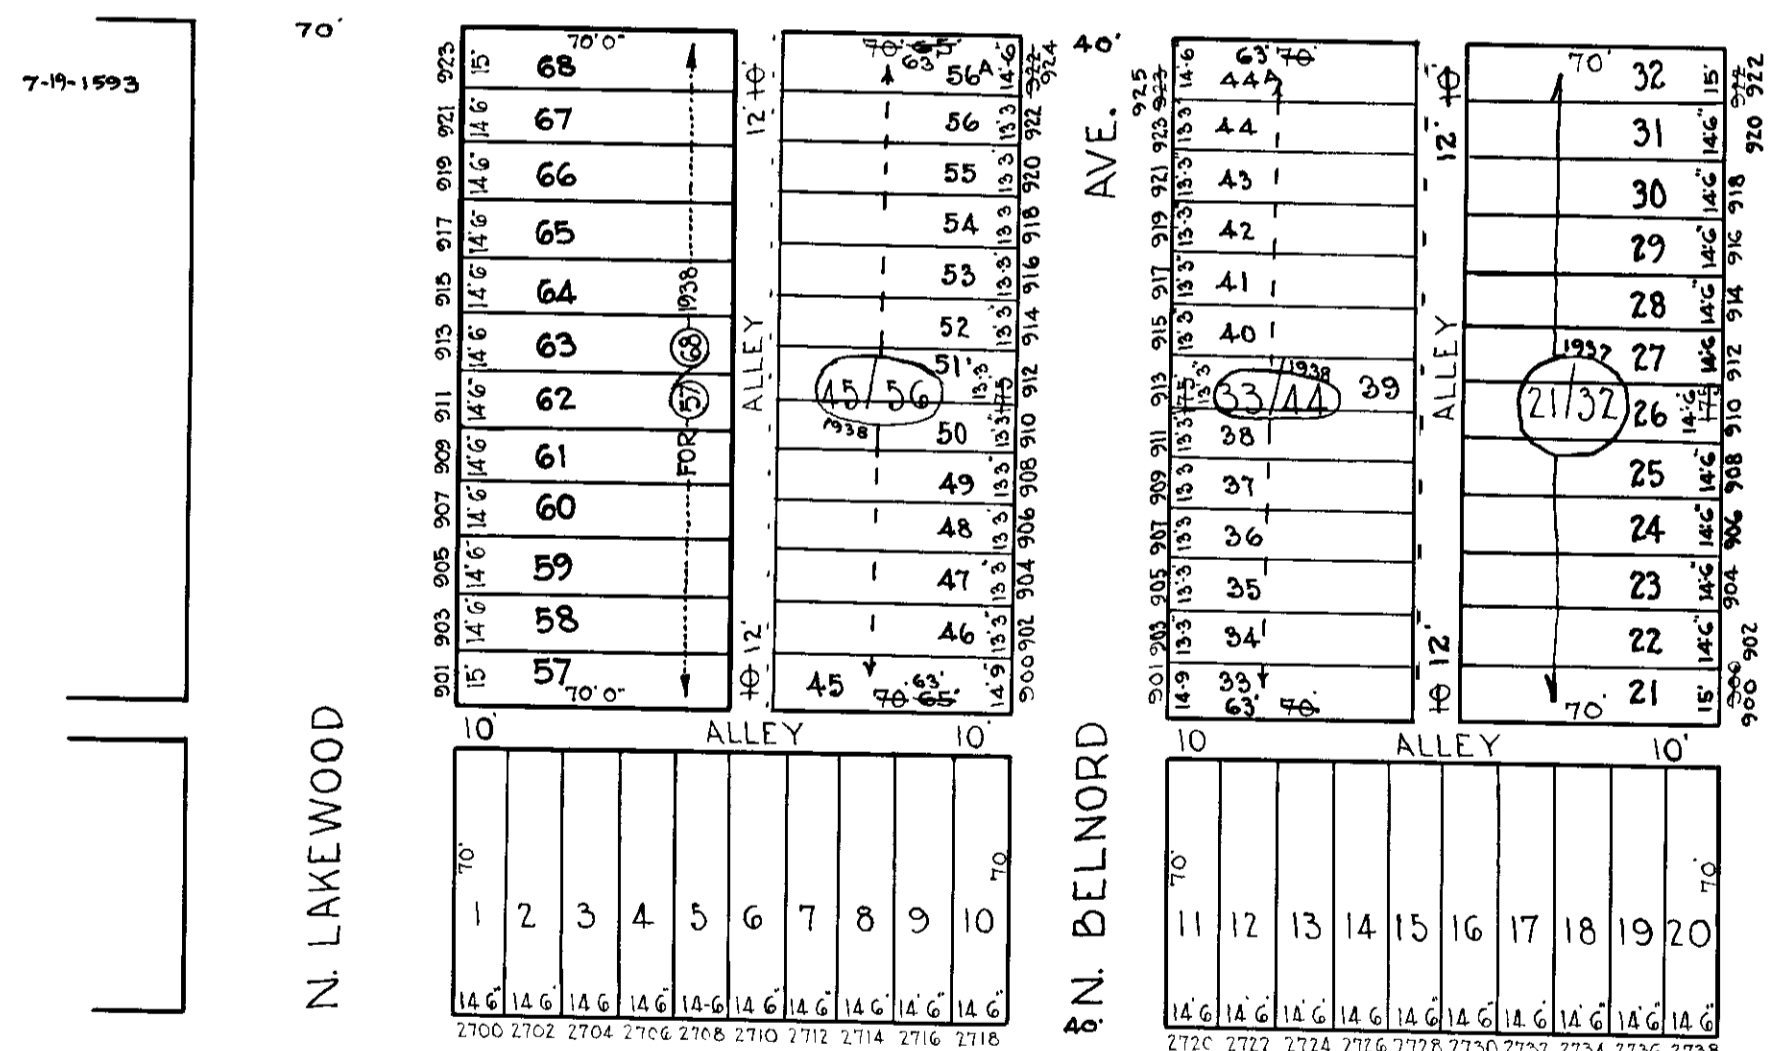 7-19-1593
70'
N. LAKEWOOD
923 15' 68 70'0"
921 14'6 67
919 14'6" 66
917 14'6" 65
915 14'6" 64
913 14'6 63
911 14'6" 62
909 14'6" 61
907 14'6" 60
905 14'6" 59
903 14'6" 58
901 15' 57 70'0"
FOR 57 68 1938
12' 10'
ALLEY
10 12'
70' 65' 63' 56A 14'6" 922 924
56 13'3 922
55 13'3 920
54 13'3 918
53 13'3" 916
52 13'3" 914
51 13'3 17'5 912
45/56
1938
50 13'3" 910
49 13'3 908
48 13'3 906
47 13'3 904
46 13'3" 902
45 63' 70' 65' 14'9 900
40'
AVE.
N. BELNORD
40'
925 923 14'6 63' 70' 44A
923 13'3 44
921 13'3" 43
919 13'3" 42
917 13'3" 41
915 13'3" 40
913 17'5 13'3" 39
33/44
1938
911 13'3" 38
909 13'3 37
907 13'3 36
905 13'3" 35
903 13'3" 34
901 14'9 33 63' 70'
12' 10
ALLEY
10 12'
70' 32 15' 922 922
31 14'6" 920
30 14'6" 918
29 14'6" 916
28 14'6" 914
1937
27 14'6 912
21/32
26 14'6 17'5 910
25 14'6" 908
24 14'6" 906
23 14'6" 904
22 14'6" 902
70' 21 15' 900 900
10' ALLEY 10'
10 ALLEY 10'
70' 70'
1 2 3 4 5 6 7 8 9 10
14 6" 14 6' 14 6 14 6" 14-6 14 6" 14 6" 14 6' 14' 6" 14 6"
2700 2702 2704 2706 2708 2710 2712 2714 2716 2718
70' 70'
11 12 13 14 15 16 17 18 19 20
14'6 14' 6 14' 6' 14 6" 14 6" 14 6" 14 6' 14' 6" 14' 6" 14 6"
2720 2722 2724 2726 2728 2730 2732 2734 2736 2738